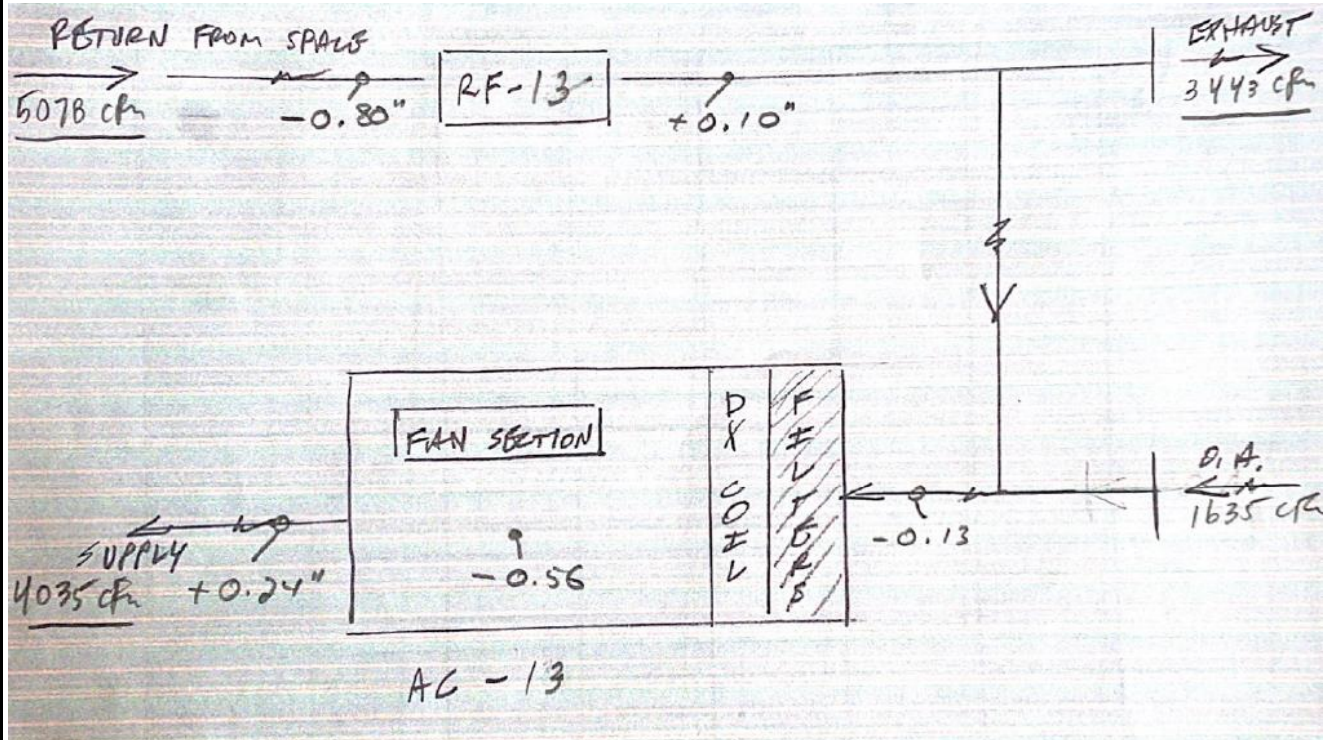 RETURN FROM SPACE
EXHAUST
5078 cfm
-0.80"
RF-13
+0.10"
3443 cfm
FAN SECTION
DX COIL
FILTERS
O.A.
1635 cfm
-0.13
SUPPLY
4035 cfm
+0.24"
-0.56
AC-13